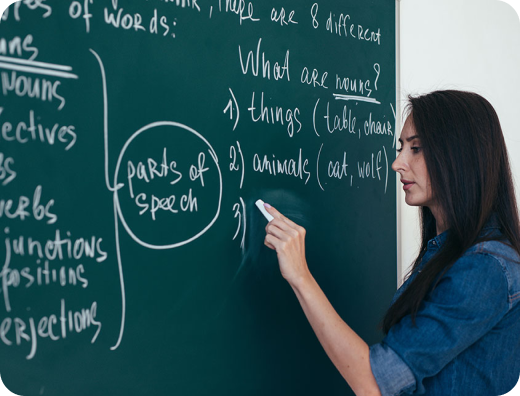 of words:
, there are 8 different
nouns
ectives
junctions
positions
erjections
parts of
speech
What are nouns?
1) things (table, chair)
2) animals (cat, wolf)
3)